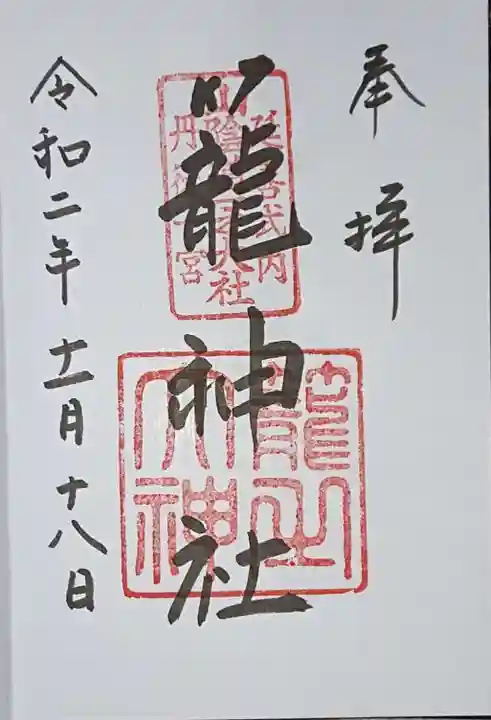 奉拝
籠神社
延喜式内
山陰
大社
丹後一宮
籠之
大神
令和二年十一月十八日